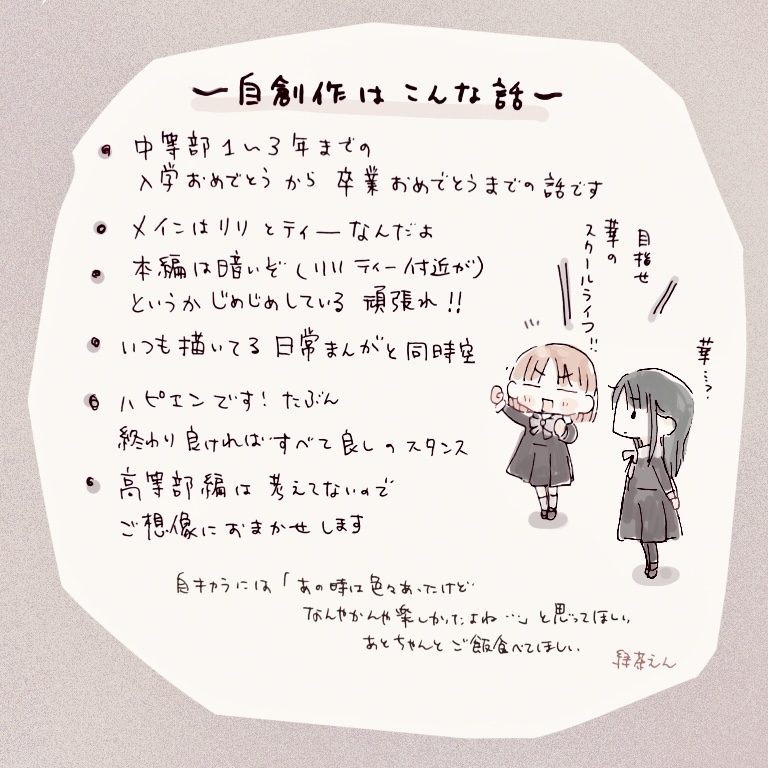 ー自創作はこんな話ー
・中等部1〜3年までの
入学おめでとうから 卒業おめでとうまでの話です
・メインはリリとティーなんだよ
・本編は暗いぞ(リリティー付近が)
というかじめじめしている 頑張れ!!
・いつも描いてる日常まんがと同時空
・ハピエンです!たぶん
終わり良ければすべて良しのスタンス
・高等部編は考えてないので
ご想像におまかせします
目指せ
華の
スクールライフ!!
華…?
自キャラには「あの時は色々あったけど
なんやかんや楽しかったよね…」と思ってほしい
あとちゃんとご飯食べてほしい
緑茶えん